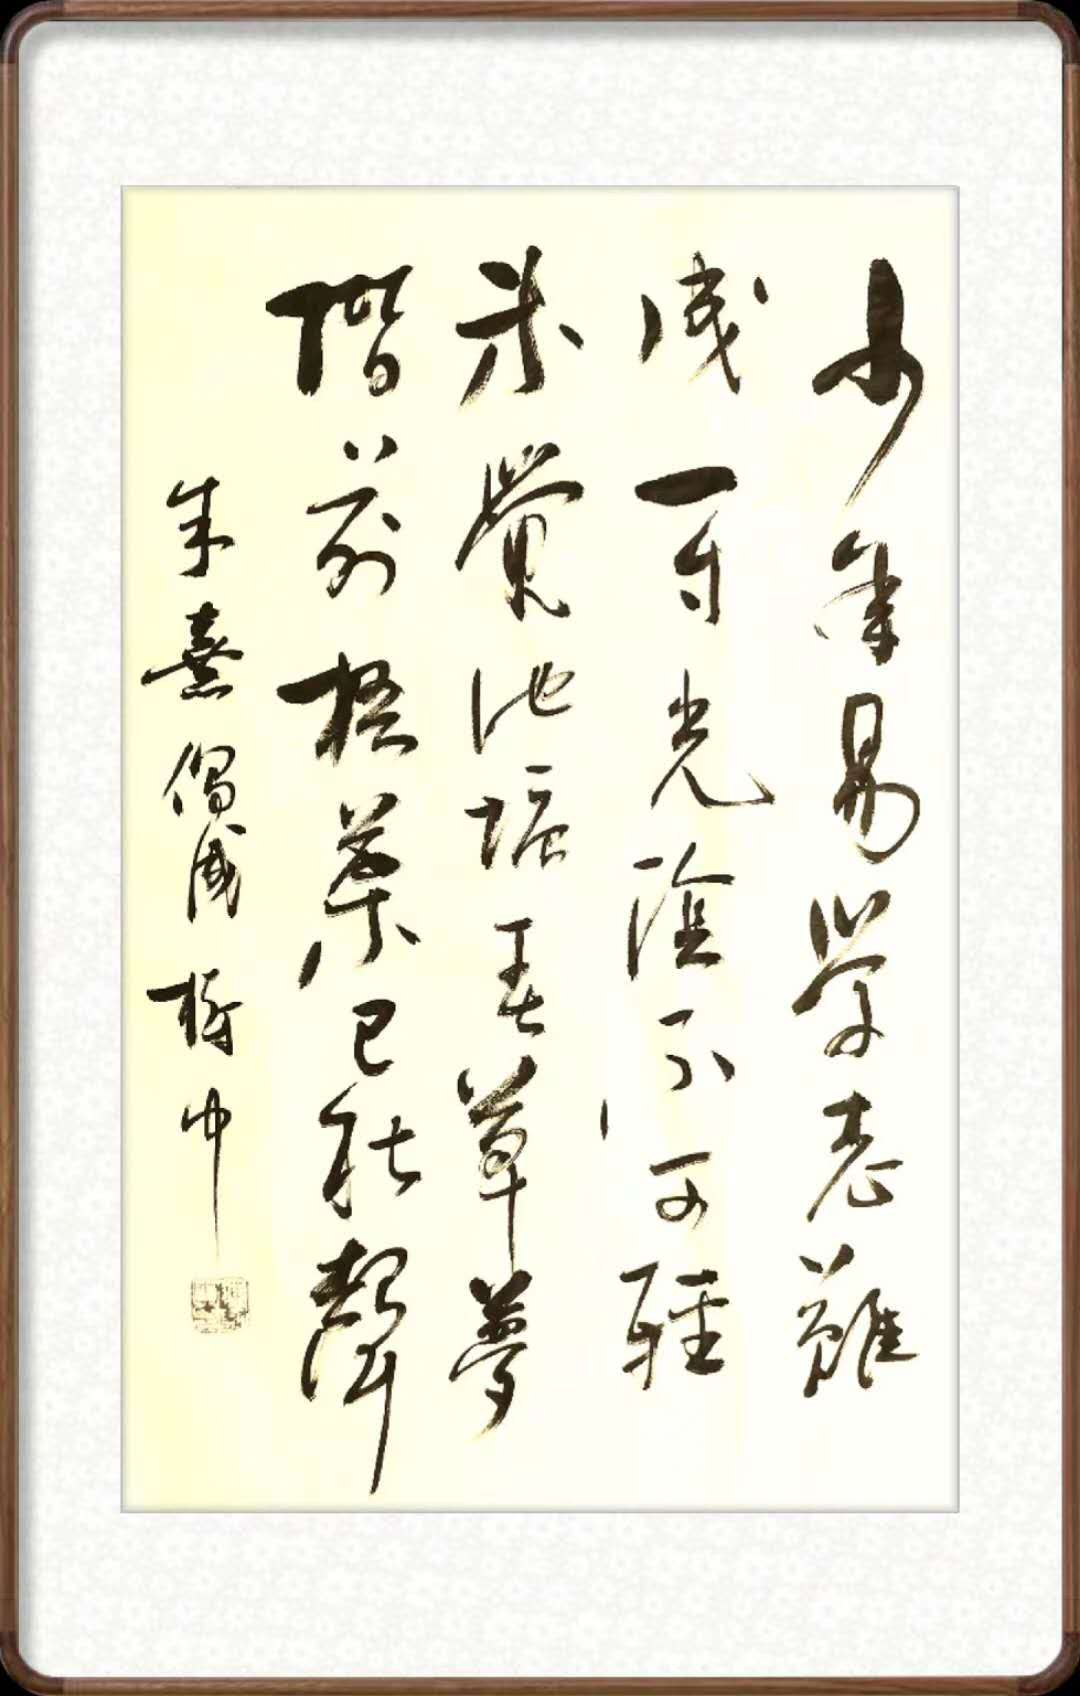 少年易學老難
成一寸光陰不可輕
未覺池塘春草夢
階前梧葉已秋聲
朱熹偶成 中